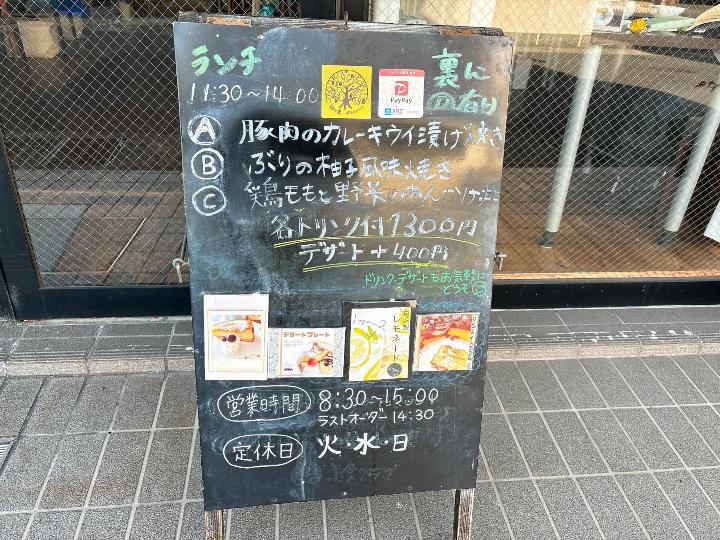 ランチ
11:30~14:00
裏に
Ⓟ有り
PayPay
Ⓐ 豚肉のカレーキウイ漬け焼き
Ⓑ ぶりの柚子風味焼き
Ⓒ 鶏ももと野菜の
各ドリンク付1300円
デザート+400円
ドリンク、デザートもお気軽に
どうぞ
デザートプレート
レモネード
営業時間 8:30~15:00
ラストオーダー 14:30
定休日 火・水・日